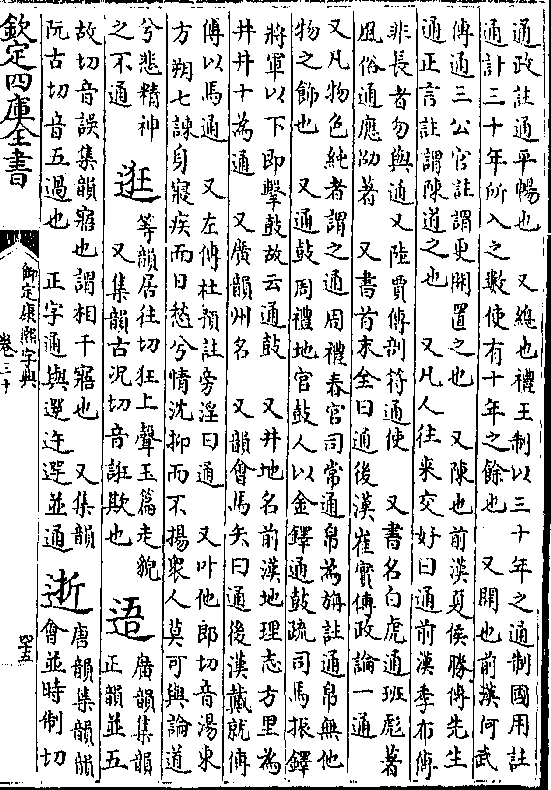 通政註通平暢也 又總也禮王制以三十年之通制國用註
通計三十年所入之數使有十年之餘也 又開也前漢何武
傳通三公官註謂更開置之也 又陳也前漢夏侯勝傳先生
通正言註謂陳道之也 又凡人往來交好曰通前漢季布傳
非長者勿與通又陸賈傳剖符通使 又書名白虎通班彪著
風俗通應劭著 又書首末全曰通後漢崔寔傳政論一通
又凡物色純者謂之通周禮春官司常通帛為旜註通帛無他
物之飾也 又通鼓周禮地官鼓人以金鐸通鼓疏司馬振鐸
將軍以下即擊鼓故云通鼓 又井地名前漢地理志方里為
井井十為通 又廣韻州名 又韻會馬矢曰通後漢戴就傳
傳以馬通 又左傳杜預註旁淫曰通 又叶他郎切音湯東
方朔七諫身寢疾而日愁兮情沈抑而不揚衆人莫可與論道
兮悲精神
之不通
逛
等韻居往切狂上聲玉篇走貌
又集韻古況切音誑欺也
逜
廣韻集韻
正韻並五
故切音誤集韻寤也謂相干寤也 又集韻
阮古切音五過也 正字通與遻迕遌並通
逝
唐韻集韻韻
會並時制切
欽定四庫全書
御定康熙字典
卷三十
四五